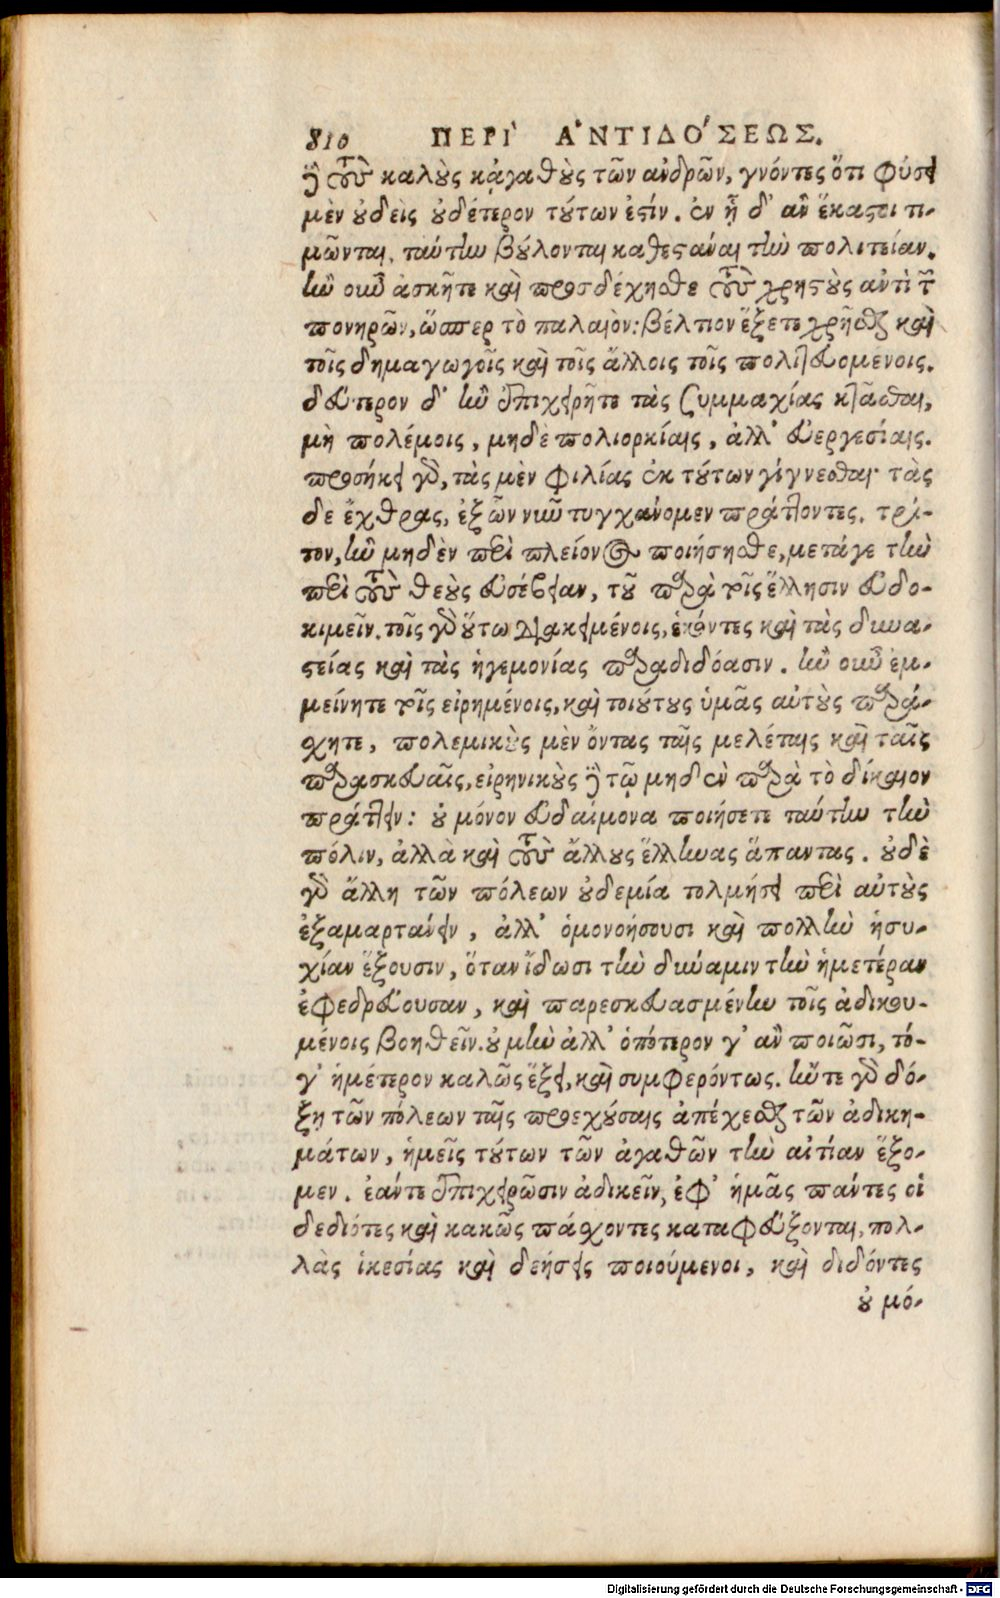 810 ΠΕΡΙ` Α᾿ΝΤΙΔΟ´ΣΕΩΣ.
ἢ τοὺς καλοὺς κἀγαθοὺς τῶν ἀνδρῶν, γνόντες ὅτι φύσει
μὲν οὐδεὶς οὐδέτερον τούτων ἐστίν. ἐν ᾗ δ' ἂν ἕκαστοι τι-
μῶνται, ταύτην βούλονται καθεστάναι τὴν πολιτείαν.
ἢν οὖν ἀσκῆτε καὶ προσδέχησθε τοὺς χρηστοὺς ἀντὶ τῶν
πονηρῶν, ὥσπερ τὸ παλαιόν: βέλτιον ἕξετε χρῆσθαι καὶ
τοῖς δημαγωγοῖς καὶ τοῖς ἄλλοις τοῖς πολιτευομένοις.
δεύτερον δ' ἢν ἐπιχειρῆτε τὰς συμμαχίας κτᾶσθαι,
μὴ πολέμοις, μηδὲ πολιορκίαις, ἀλλ' εὐεργεσίαις.
προσήκει γὰρ, τὰς μὲν φιλίας ἐκ τούτων γίγνεσθαι· τὰς
δὲ ἔχθρας, ἐξ ὧν νῦν τυγχάνομεν πράττοντες. τρί-
τον, ἢν μηδὲν περὶ πλείονος ποιήσησθε, μετάγε τὴν
περὶ τοὺς θεοὺς εὐσέβειαν, τοῦ παρὰ τοῖς ἕλλησιν εὐδο-
κιμεῖν. τοῖς γὰρ οὕτω διακειμένοις, ἑκόντες καὶ τὰς δυνα-
στείας καὶ τὰς ἡγεμονίας παραδιδόασιν. ἢν οὖν ἐμ-
μείνητε τοῖς εἰρημένοις, καὶ τοιούτους ὑμᾶς αὐτοὺς παρά-
σχητε, πολεμικοὺς μὲν ὄντας ταῖς μελέταις καὶ ταῖς
παρασκευαῖς, εἰρηνικοὺς δὲ τῷ μηδὲν παρὰ τὸ δίκαιον
πράττειν: οὐ μόνον εὐδαίμονα ποιήσετε ταύτην τὴν
πόλιν, ἀλλὰ καὶ τοὺς ἄλλους ἕλληνας ἅπαντας. οὐδὲ
γὰρ ἄλλη τῶν πόλεων οὐδεμία τολμήσει περὶ αὐτοὺς
ἐξαμαρτάνειν, ἀλλ' ὁμονοήσουσι καὶ πολλὴν ἡσυ-
χίαν ἕξουσιν, ὅταν ἴδωσι τὴν δύναμιν τὴν ἡμετέραν
ἐφεδρεύουσαν, καὶ παρεσκευασμένην τοῖς ἀδικου-
μένοις βοηθεῖν. οὐ μὴν ἀλλ' ὁπότερον γ' ἂν ποιῶσι, τό-
γ' ἡμέτερον καλῶς ἕξει, καὶ συμφερόντως. ἤντε γὰρ δό-
ξῃ τῶν πόλεων ταῖς προεχούσαις ἀπέχεσθαι τῶν ἀδικη-
μάτων, ἡμεῖς τούτων τῶν ἀγαθῶν τὴν αἰτίαν ἕξο-
μεν. ἐάντε ἐπιχειρῶσιν ἀδικεῖν, ἐφ' ἡμᾶς πάντες οἱ
δεδιότες καὶ κακῶς πάσχοντες καταφεύξονται, πολ-
λὰς ἱκεσίας καὶ δεήσεις ποιούμενοι, καὶ διδόντες
οὐ μό-
Digitalisierung gefördert durch die Deutsche Forschungsgemeinschaft - DFG